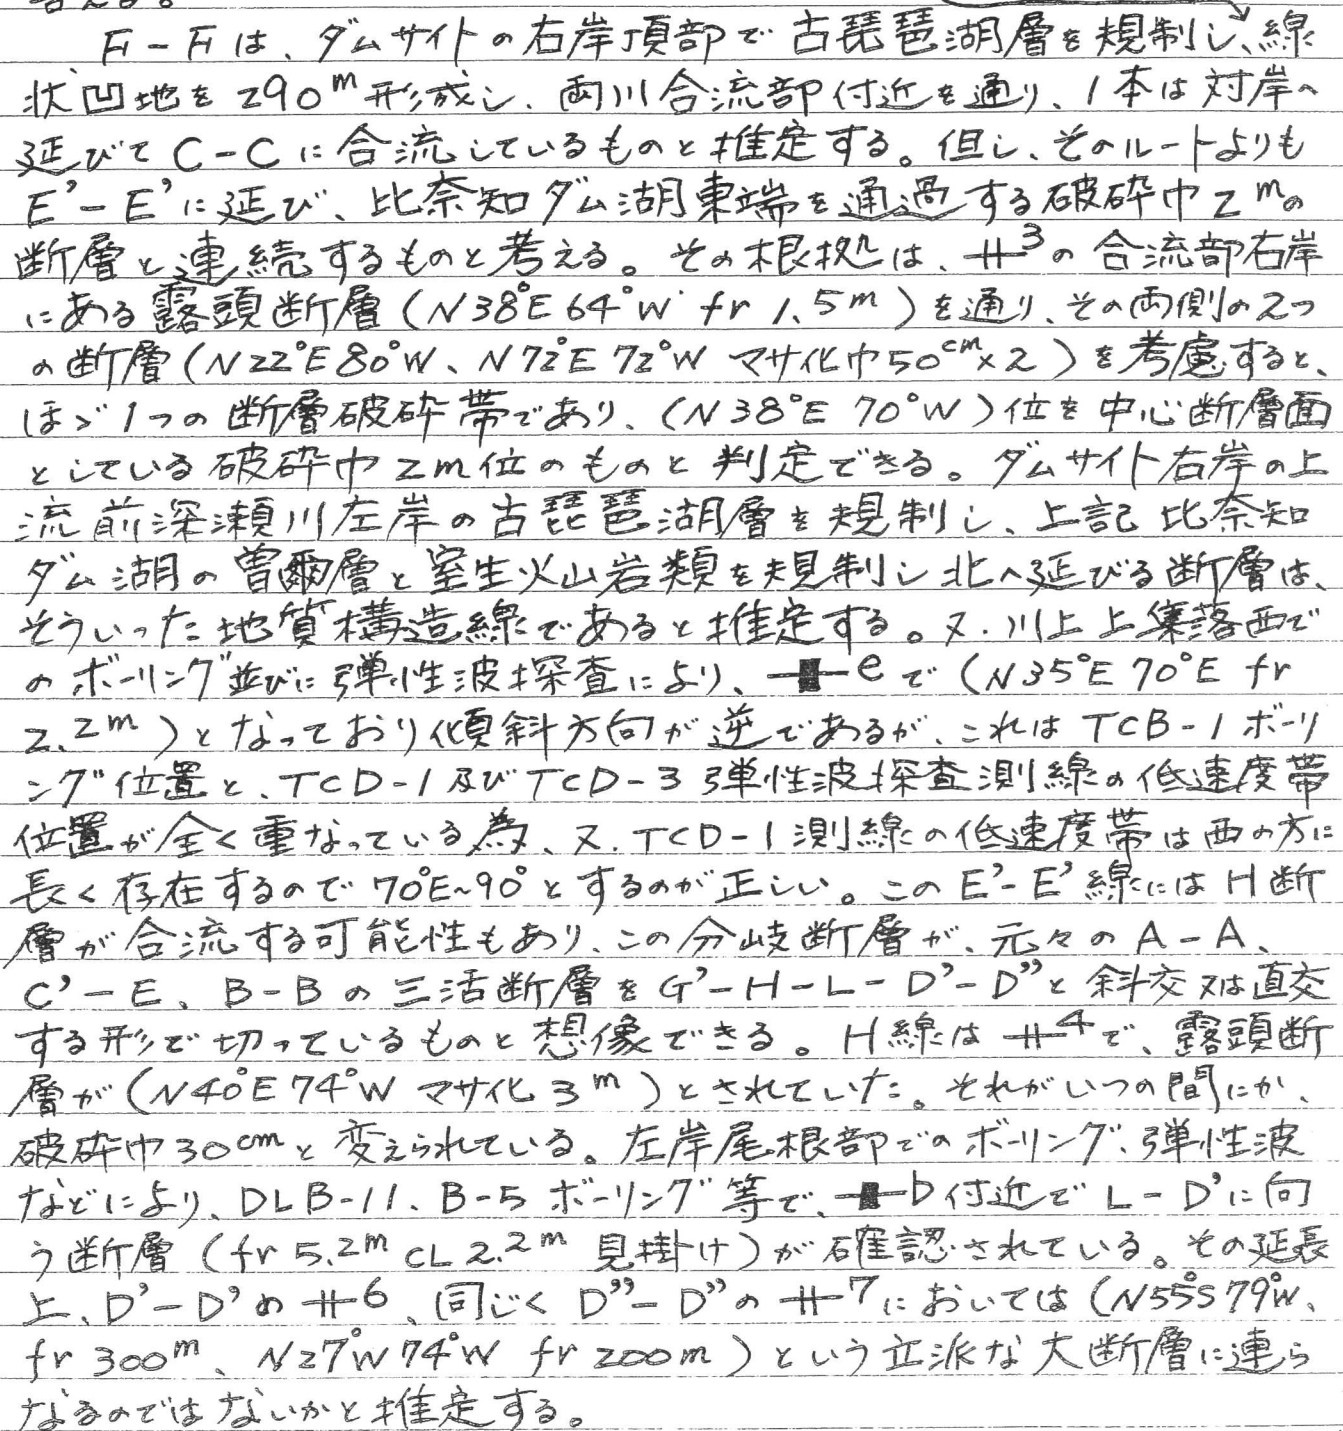 答える。
F－Fは、ダムサイトの右岸頂部で古琵琶湖層を規制し、線
状凹地を290m形成し、両川合流部付近を通り、1本は対岸へ
延びてC－Cに合流しているものと推定する。但し、そのルートよりも
E'－E'に延び、比奈知ダム湖東端を通過する破砕巾2mの
断層と連続するものと考える。その根拠は、╫3の合流部右岸
にある露頭断層(N38°E64°W fr 1.5m)を通り、その両側の2つ
の断層(N22°E80°W、N72°E72°W マサ化巾50cm×2)を考慮すると、
ほゞ1つの断層破砕帯であり、(N38°E 70°W)位を中心断層面
としている破砕巾2m位のものと判定できる。ダムサイト右岸の上
流前深瀬川左岸の古琵琶湖層を規制し、上記比奈知
ダム湖の曽爾層と室生火山岩類を規制し北へ延びる断層は、
そういった地質構造線であると推定する。又、川上上集落西で
のボーリング並びに弾性波探査により、eで(N35°E 70°E fr
2.2m)となっており傾斜方向が逆であるが、これはTCB-1ボーリ
ング位置と、TCD-1及びTCD-3弾性波探査測線の低速度帯
位置が全く重なっている為、又、TCD-1測線の低速度帯は西の方に
長く存在するので70°E~90°とするのが正しい。このE'-E'線にはH断
層が合流する可能性もあり、この分岐断層が、元々のA－A、
C'－E、B－Bの三活断層をG'－H－L－D'－D''と斜交又は直交
する形で切っているものと想像できる。H線は╫4で、露頭断
層が(N40°E74°W マサ化3m)とされていた。それがいつの間にか、
破砕巾30cmと変えられている。左岸尾根部でのボーリング、弾性波
などにより、DLB-11、B-5ボーリング等で、b付近でL－D'に向
う断層(fr5.2m CL2.2m 見掛け)が確認されている。その延長
上、D'－D'の╫6、同じくD''－D''の╫7においては(N55°S79°W、
fr 300m、N27°W74°W fr 200m)という立派な大断層に連ら
なるのではないかと推定する。